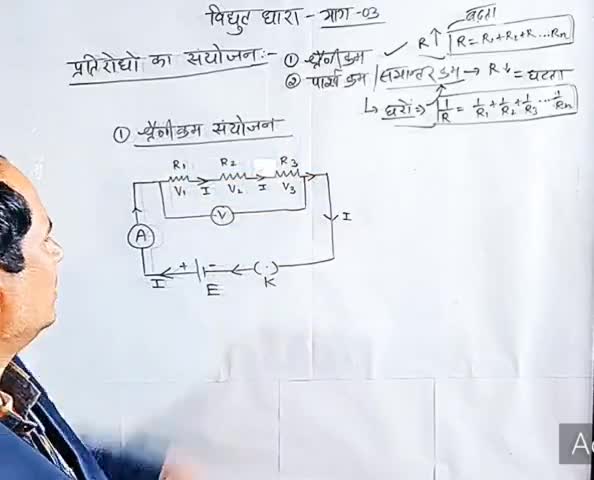 विद्युत धारा - भाग - 03
प्रतिरोधों का संयोजन :-
① श्रेणीक्रम ✓ R↑ R = R₁ + R₂ + R ... Rn बढ़ता
② पार्श्व क्रम / समान्तर क्रम → R↓ = घटता
↳ घरों → 1/R = 1/R₁ + 1/R₂ + 1/R₃ ... 1/Rn
① श्रेणीक्रम संयोजन
R₁ R₂ R₃
V₁ I V₂ I V₃
V
I
A
+ -
I E K
A